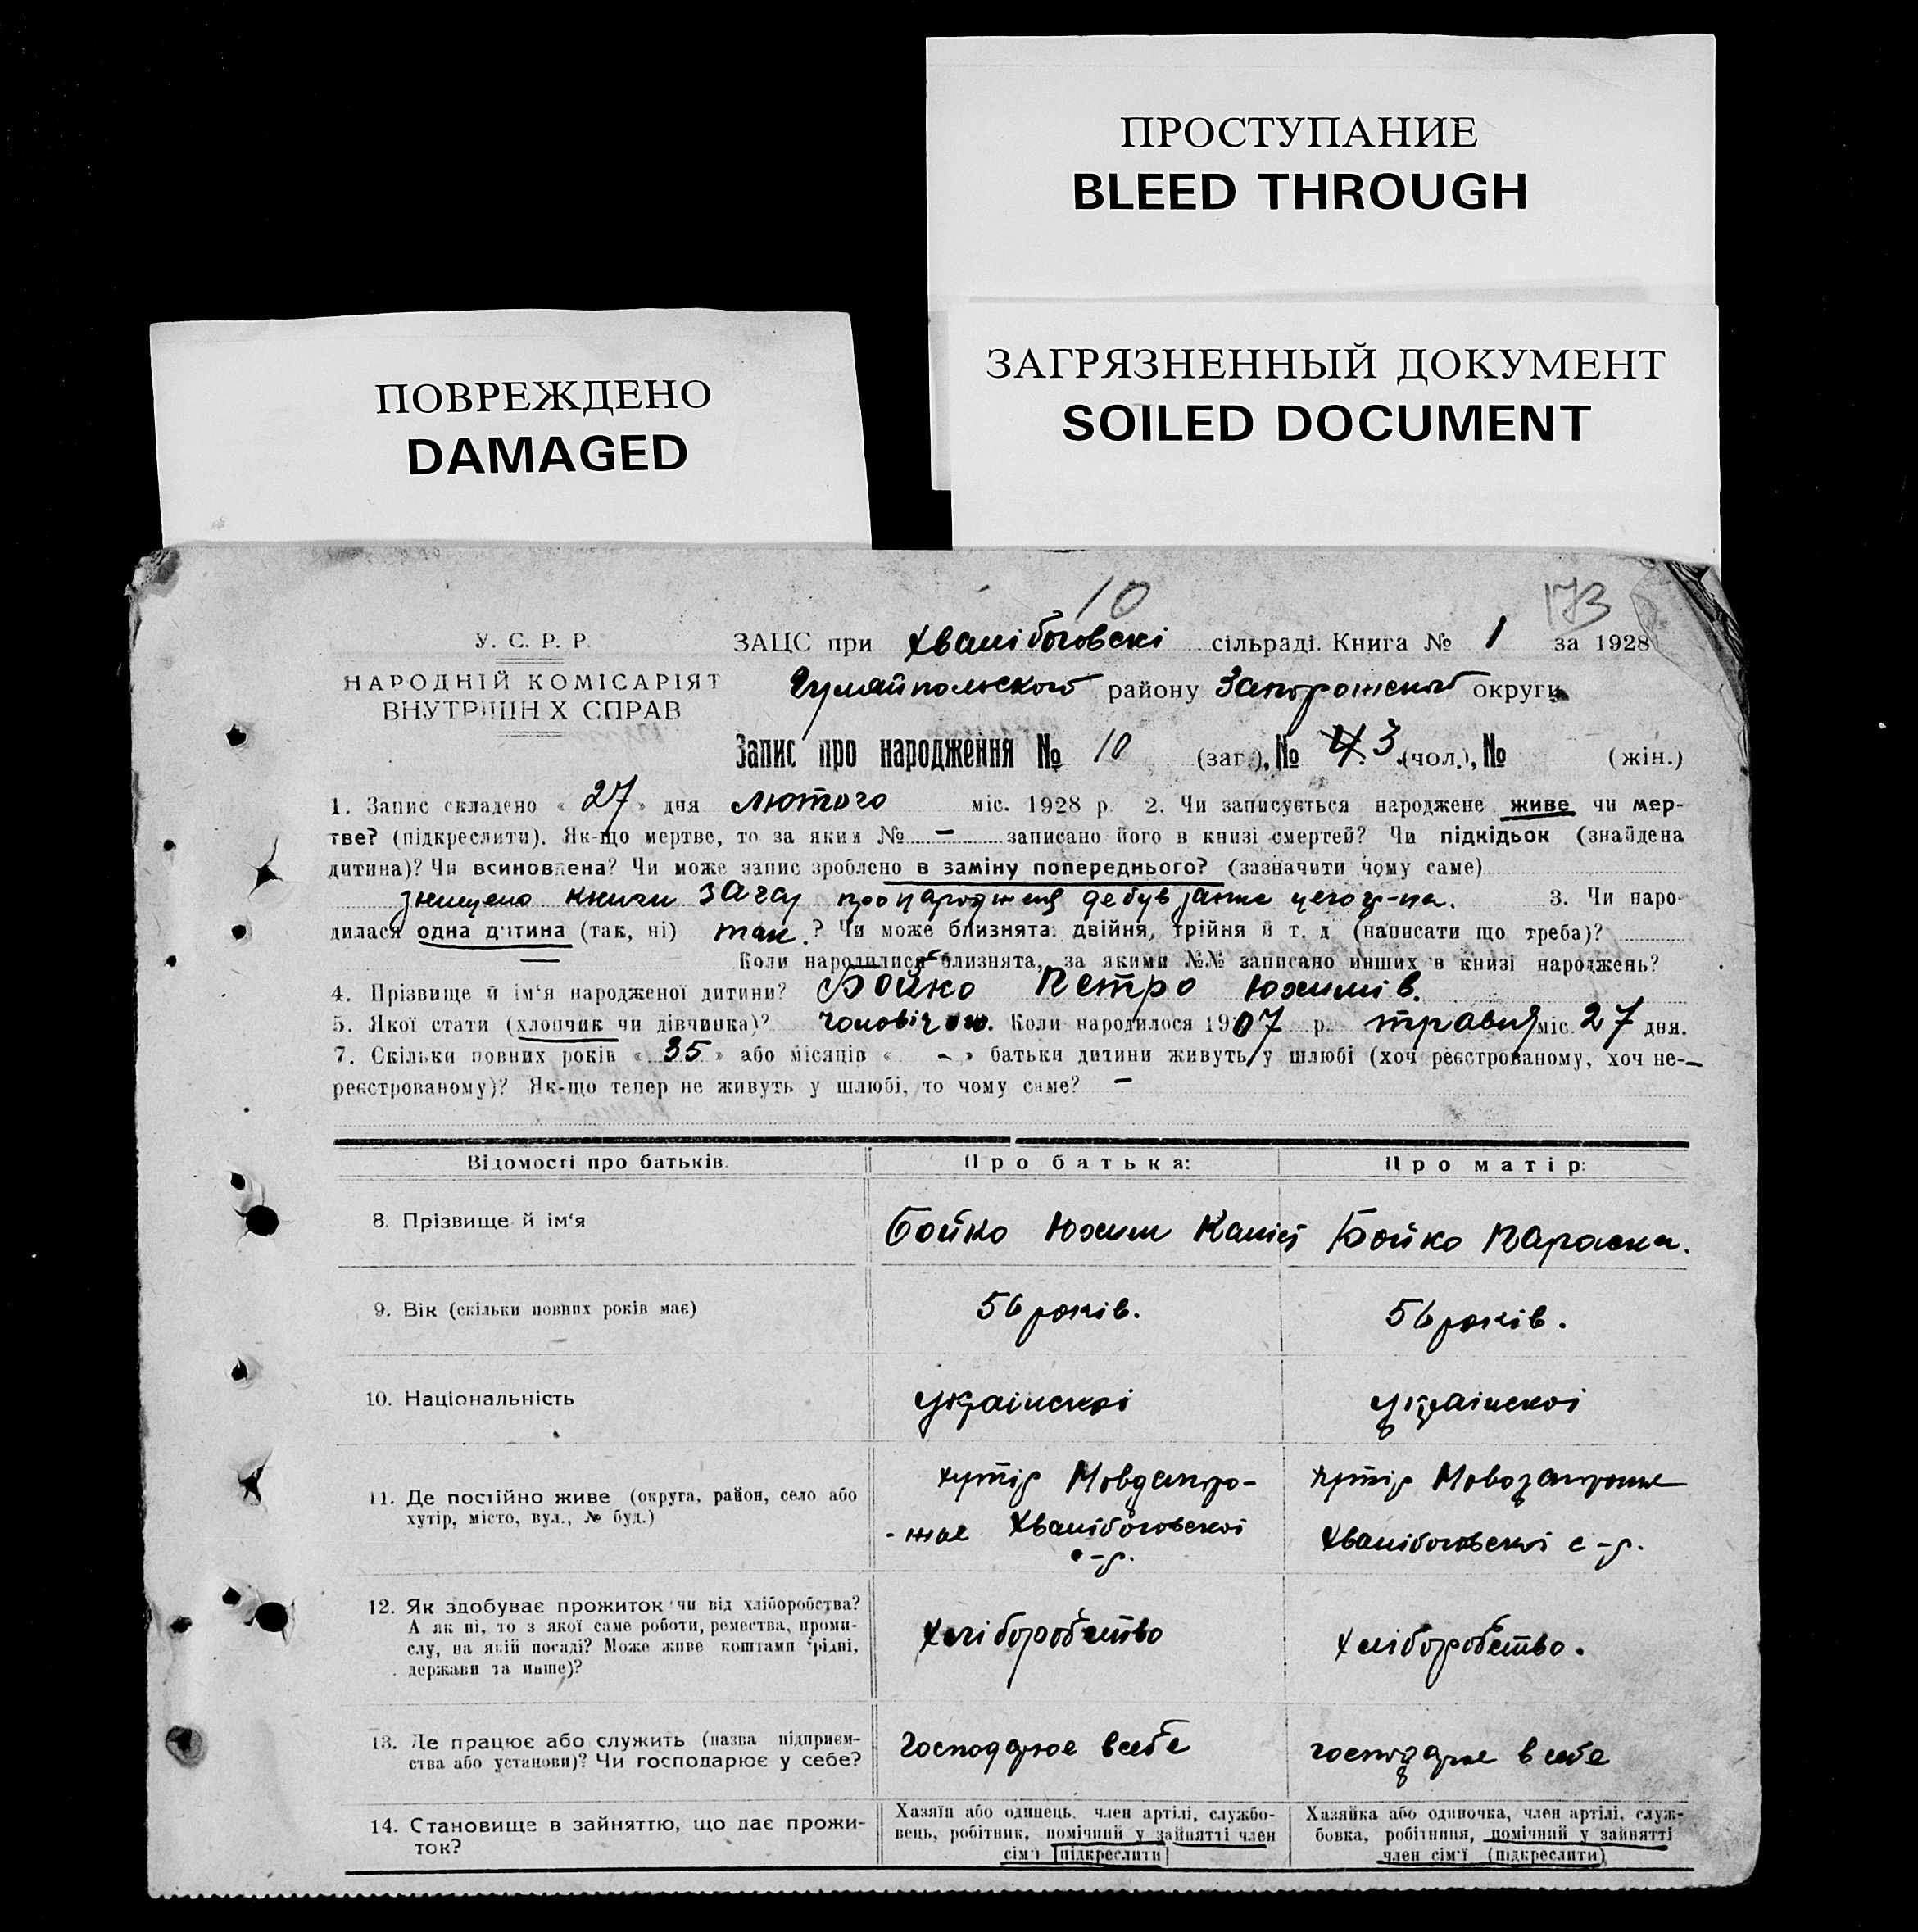 ПРОСТУПАНИЕ
BLEED THROUGH
ЗАГРЯЗНЕННЫЙ ДОКУМЕНТ
SOILED DOCUMENT
ПОВРЕЖДЕНО
DAMAGED
10
173
У. С. Р. Р.
НАРОДНІЙ КОМІСАРІЯТ
ВНУТРІШНІХ СПРАВ
ЗАЦС при Хвалібоговскі сільраді. Книга № 1 за 1928
Гуляйпольского району Запорожской округи
Запис про народження № 10 (заг.), № 3 (чол.), № (жін.)
1. Запис складено « 27 » дня лютого міс. 1928 р. 2. Чи записується народжене живе чи мер-
тве? (підкреслити). Як-що мертве, то за яким № — записано його в книзі смертей? Чи підкідьок (знайдена
дитина)? Чи всиновлена? Чи може запис зроблено в заміну попереднього? (зазначити чому саме)
знищено книги загсу про народження де був запис 3. Чи наро-
дилася одна дитина (так, ні) так.? Чи може близнята: двійня, трійня й т. д (написати що треба)?
Коли народилися близнята, за якими №№ записано инших в книзі народжень?
4. Прізвище й ім'я народженої дитини? Бойко Петро Юхимів.
5. Якої стати (хлопчик чи дівчинка)? чоловічою. Коли народилося 1907 р. травня міс. 27 дня.
7. Скільки повних років « 35 » або місяців « - » батьки дитини живуть у шлюбі (хоч реєстрованому, хоч не-
реєстрованому)? Як-що тепер не живуть у шлюбі, то чому саме? —
Відомості про батьків. Про батька: Про матір:
8. Прізвище й ім'я Бойко Юхим Бойко Параска.
9. Вік (скільки повних років має) 56 років. 56 років.
10. Національність українскоі українскоі
11. Де постійно живе (округа, район, село або
хутір, місто, вул., № буд.)
хутір Новозапоро-
-жае Хвалібоговскоі
с-р.
хутір Новозапорожае
Хвалібоговскоі с-р.
12. Як здобуває прожиток чи від хліборобства?
А як ні, то з якої саме роботи, ремества, проми-
слу, на якій посаді? Може живе коштами рідні,
держави та инше)?
хліборобство хліборобство.
13. Де працює або служить (назва підприєм-
ства або установи)? Чи господарює у себе?
господарює всебе господарює в себе
14. Становище в зайняттю, що дає прожи-
ток?
Хазяїн або одинець, член артілі, службо-
вець, робітник, помічний у зайнятті член
сім'ї (підкреслити)
Хазяйка або одиночка, член артілі, служ-
бовка, робітниця, помічний у зайнятті
член сім'ї (підкреслити)